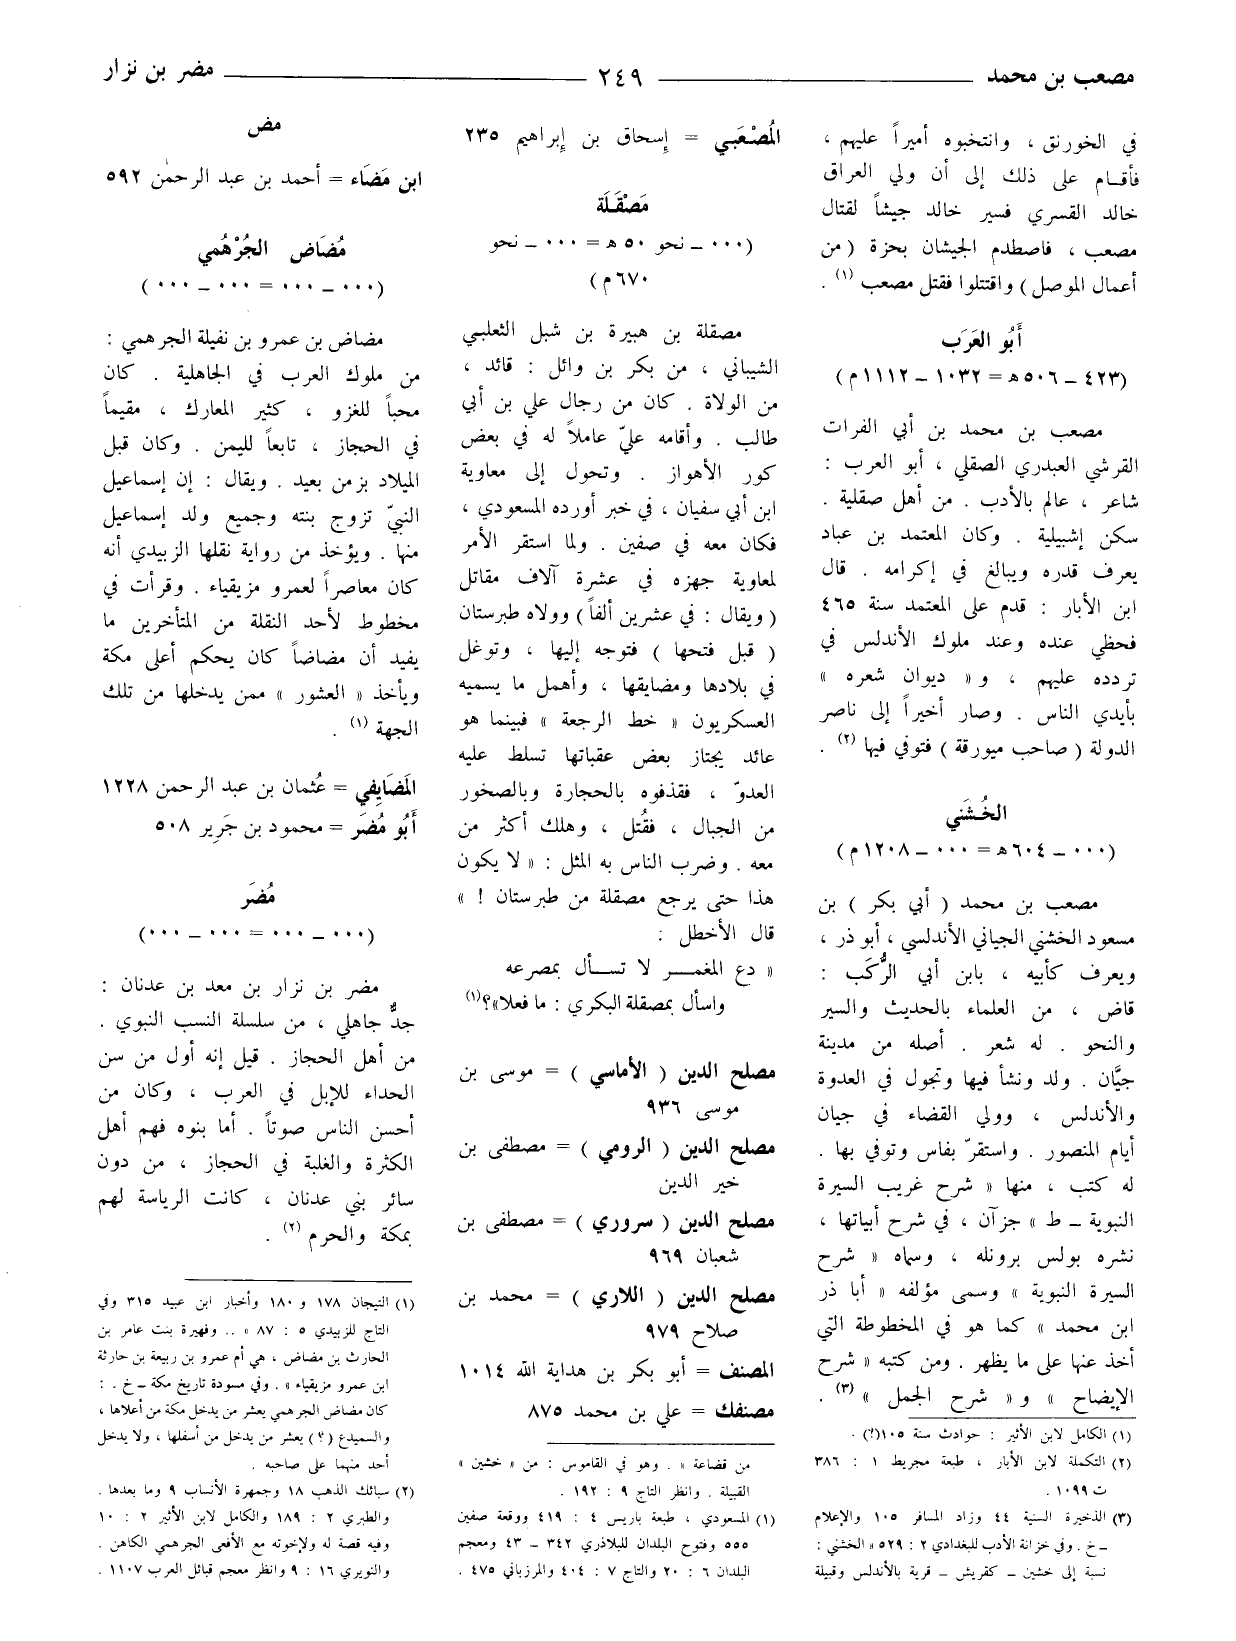 مصعب بن محمد ــــــ ٢٤٩ ــــــ مضر بن نزار
في الخورنق ، وانتخبوه أميراً عليهم ،
فأقـام على ذلك إلى أن ولي العراق
خالد القسري فسير خالد جيشاً لقتال
مصعب ، فاصطدم الجيشان بحزة ( من
أعمال الموصل ) واقتتلوا فقتل مصعب (١) .
أَبُو العَرَب
(٤٢٣ ـ ٥٠٦ه = ١٠٣٢ ـ ١١١٢م)
مصعب بن محمد بن أبي الفرات
القرشي العبدري الصقلي ، أبو العرب :
شاعر ، عالم بالأدب . من أهل صقلية .
سكن إشبيلية . وكان المعتمد بن عباد
يعرف قدره ويبالغ في إكرامه . قال
ابن الأبار : قدم على المعتمد سنة ٤٦٥
فحظي عنده وعند ملوك الأندلس في
تردده عليهم ، و« ديوان شعره »
بأيدي الناس . وصار أخيراً إلى ناصر
الدولة ( صاحب ميورقة ) فتوفي فيها (٢) .
الخُشَني
(٠٠٠ ـ ٦٠٤ه = ٠٠٠ ـ ١٢٠٨م)
مصعب بن محمد ( أبي بكر ) بن
مسعود الخشني الجياني الأندلسي ، أبو ذر ،
ويعرف كأبيه ، بابن أبي الرُّكَب :
قاض ، من العلماء بالحديث والسير
والنحو . له شعر . أصله من مدينة
جيَّان . ولد ونشأ فيها وتجول في العدوة
والأندلس ، وولي القضاء في جيان
أيام المنصور . واستقرّ بفاس وتوفي بها .
له كتب ، منها « شرح غريب السيرة
النبوية ـ ط » جزآن ، في شرح أبياتها ،
نشره بولس برونله ، وسماه « شرح
السيرة النبوية » وسمى مؤلفه « أبا ذر
ابن محمد » كما هو في المخطوطة التي
أخذ عنها على ما يظهر . ومن كتبه « شرح
الإيضاح » و« شرح الجمل » (٣) .
(١) الكامل لابن الأثير : حوادث سنة ١٠٥(!) .
(٢) التكملة لابن الأبار ، طبعة مجريط ١ : ٣٨٦
ت ١٠٩٩ .
(٣) الذخيرة السنية ٤٤ وزاد المسافر ١٠٥ والإعلام
ـ خ . وفي خزانة الأدب للبغدادي ٢ : ٥٢٩ « الخشني :
نسبة إلى خشين ـ كقريش ـ قرية بالأندلس وقبيلة
المُصْعَبي = إسحاق بن إبراهيم ٢٣٥
مَصْقَلَة
(٠٠٠ ـ نحو ٥٠ ه = ٠٠٠ ـ نحو
٦٧٠م)
مصقلة بن هبيرة بن شبل الثعلبي
الشيباني ، من بكر بن وائل : قائد ،
من الولاة . كان من رجال علي بن أبي
طالب . وأقامه عليّ عاملاً له في بعض
كور الأهواز . وتحول إلى معاوية
ابن أبي سفيان ، في خبر أورده المسعودي ،
فكان معه في صفين . ولما استقر الأمر
لمعاوية جهزه في عشرة آلاف مقاتل
( ويقال : في عشرين ألفاً ) وولاه طبرستان
( قبل فتحها ) فتوجه إليها ، وتوغل
في بلادها ومضايقها ، وأهمل ما يسميه
العسكريون « خط الرجعة » فبينما هو
عائد يجتاز بعض عقباتها تسلط عليه
العدوّ ، فقذفوه بالحجارة وبالصخور
من الجبال ، فقُتل ، وهلك أكثر من
معه . وضرب الناس به المثل : « لا يكون
هذا حتى يرجع مصقلة من طبرستان ! »
قال الأخطل :
« دع المغمـــر لا تســأل بمصرعه
واسأل بمصقلة البكري : ما فعلا»؟(١)
مصلح الدين ( الأماسي ) = موسى بن
موسى ٩٣٦
مصلح الدين ( الرومي ) = مصطفى بن
خير الدين
مصلح الدين ( سروري ) = مصطفى بن
شعبان ٩٦٩
مصلح الدين ( اللاري ) = محمد بن
صلاح ٩٧٩
المصنف = أبو بكر بن هداية الله ١٠١٤
مصنفك = علي بن محمد ٨٧٥
من قضاعة » . وهو في القاموس : من « خشين »
القبيلة . وانظر التاج ٩ : ١٩٢ .
(١) المسعودي ، طبعة باريس ٤ : ٤١٩ ووقعة صفين
٥٥٥ وفتوح البلدان للبلاذري ٣٤٢ ـ ٤٣ ومعجم
البلدان ٦ : ٢٠ والتاج ٧ : ٤٠٤ والمرزباني ٤٧٥ .
مض
ابن مَضَاء = أحمد بن عبد الرحمٰن ٥٩٢
مُضَاض الجُرْهُمي
(٠٠٠ ـ ٠٠٠ = ٠٠٠ ـ ٠٠٠)
مضاض بن عمرو بن نفيلة الجرهمي :
من ملوك العرب في الجاهلية . كان
محباً للغزو ، كثير المعارك ، مقيماً
في الحجاز ، تابعاً لليمن . وكان قبل
الميلاد بزمن بعيد . ويقال : إن إسماعيل
النبيّ تزوج بنته وجميع ولد إسماعيل
منها . ويؤخذ من رواية نقلها الزبيدي أنه
كان معاصراً لعمرو مزيقياء . وقرأت في
مخطوط لأحد النقلة من المتأخرين ما
يفيد أن مضاضاً كان يحكم أعلى مكة
ويأخذ « العشور » ممن يدخلها من تلك
الجهة (١) .
المَضَايِفي = عُثمان بن عبد الرحمن ١٢٢٨
أَبُو مُضَر = محمود بن جَرير ٥٠٨
مُضَر
(٠٠٠ ـ ٠٠٠ = ٠٠٠ ـ ٠٠٠)
مضر بن نزار بن معد بن عدنان :
جدٌّ جاهلي ، من سلسلة النسب النبوي .
من أهل الحجاز . قيل إنه أول من سن
الحداء للإبل في العرب ، وكان من
أحسن الناس صوتاً . أما بنوه فهم أهل
الكثرة والغلبة في الحجاز ، من دون
سائر بني عدنان ، كانت الرياسة لهم
بمكة والحرم (٢) .
(١) التيجان ١٧٨ و ١٨٠ وأخبار ابن عبيد ٣١٥ وفي
التاج للزبيدي ٥ : ٨٧ « .. وفهيرة بنت عامر بن
الحارث بن مضاض ، هي أم عمرو بن ربيعة بن حارثة
ابن عمرو مزيقياء » . وفي مسودة تاريخ مكة ـ خ . :
كان مضاض الجرهمي يعشر من يدخل مكة من أعلاها ،
والسميدع (؟) يعشر من يدخل من أسفلها ، ولا يدخل
أحد منهما على صاحبه .
(٢) سبائك الذهب ١٨ وجمهرة الأنساب ٩ وما بعدها .
والطبري ٢ : ١٨٩ والكامل لابن الأثير ٢ : ١٠
وفيه قصة له ولإخوته مع الأفعى الجرهمي الكاهن .
والنويري ١٦ : ٩ وانظر معجم قبائل العرب ١١٠٧ .